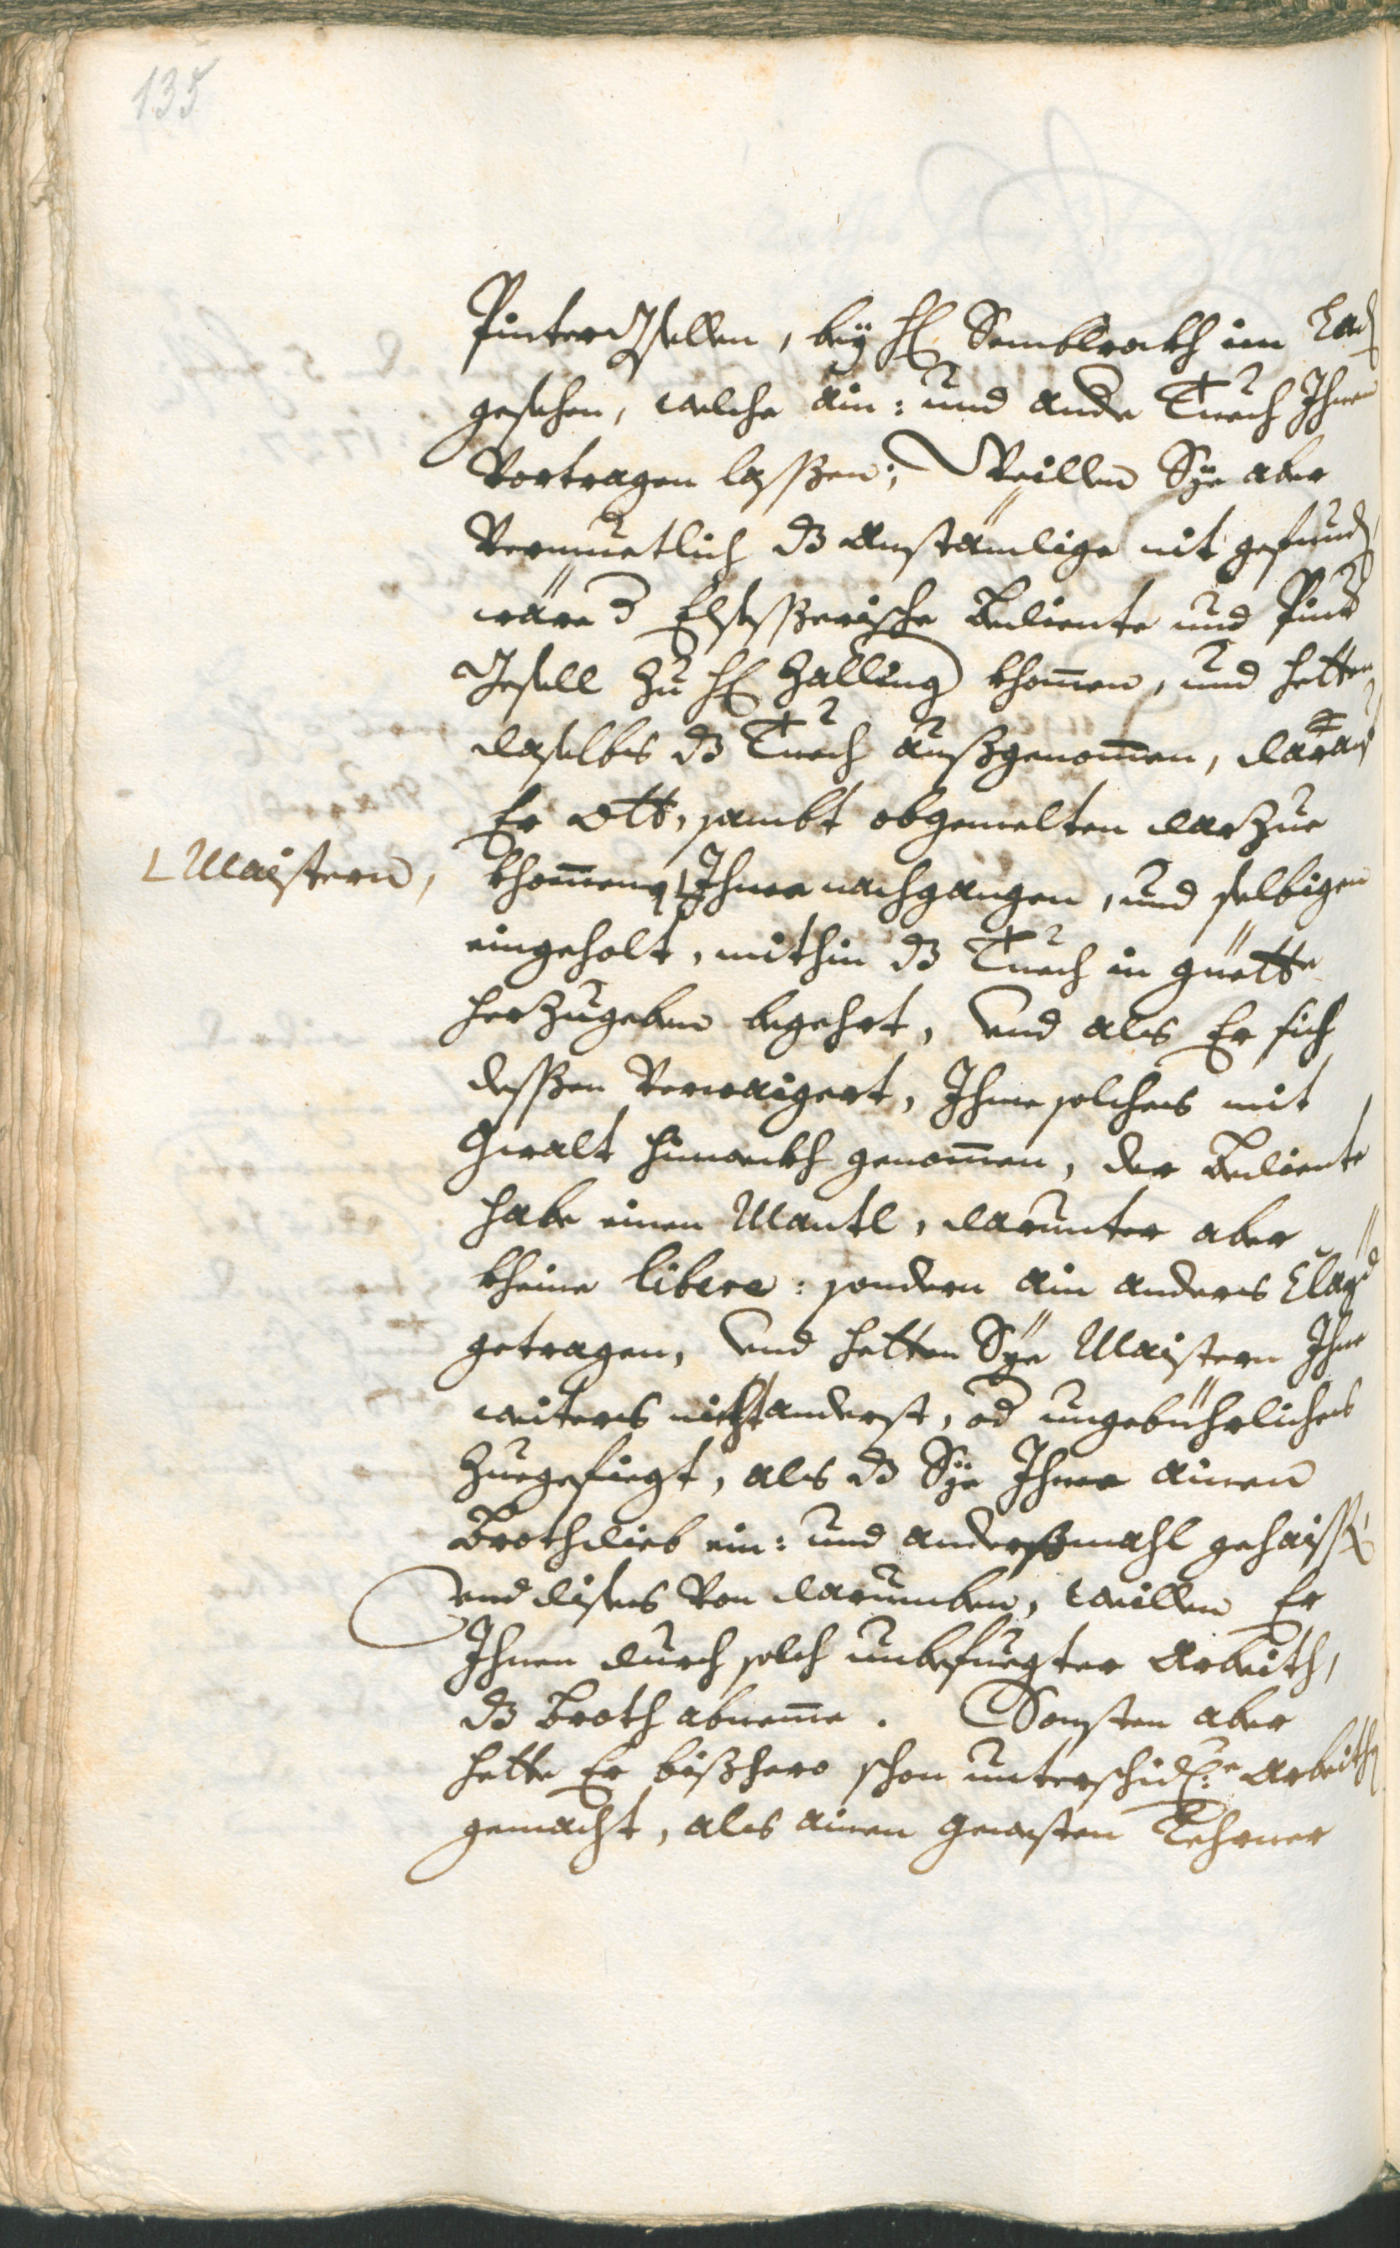 135
Pinter Gsellen, bey H: Semblrockh im Lad
gesehen, welche ain: und ande Tuech Ihnen
Vortragen lassßen; Weillen Sye aber
Vermuetlich dz anständige nit gefund
wäre d Elsesserische Bediente und Pind
Gsell zu H: Zälling khomen, und hetten
daselbs dz Tuech außgenomen, darauf
Er Ott, sambt obgemelten darzue
Maistern,
khomen, Ihme nachgangen, und selbigen
eingeholt, mithin dz Tuech in güette
herzugeben begehrt, Und als Er sich
dessßen Verwaigert, Ihme solches mit
Gwalt hinweckh genomen, der Bediente
habe einen Mantl, darunter aber
kheine libere: sondern ain anders Clayd
getragen, Und hetten Sye Maistern Ihme
weiters nicht anderst, od ungebührliches
zuegefiegt, als dz Sye Ihme ainen
Brothdieb ein: und anderßmahl gehaissßen
und dises Von darumben, weillen Er
Ihnen durch solch unbefuegter Arbeith,
dz Broth abneme. Sonsten aber
hette Er bißhero schon unterschidl: Arbeith
gemacht, als ainen gewesten